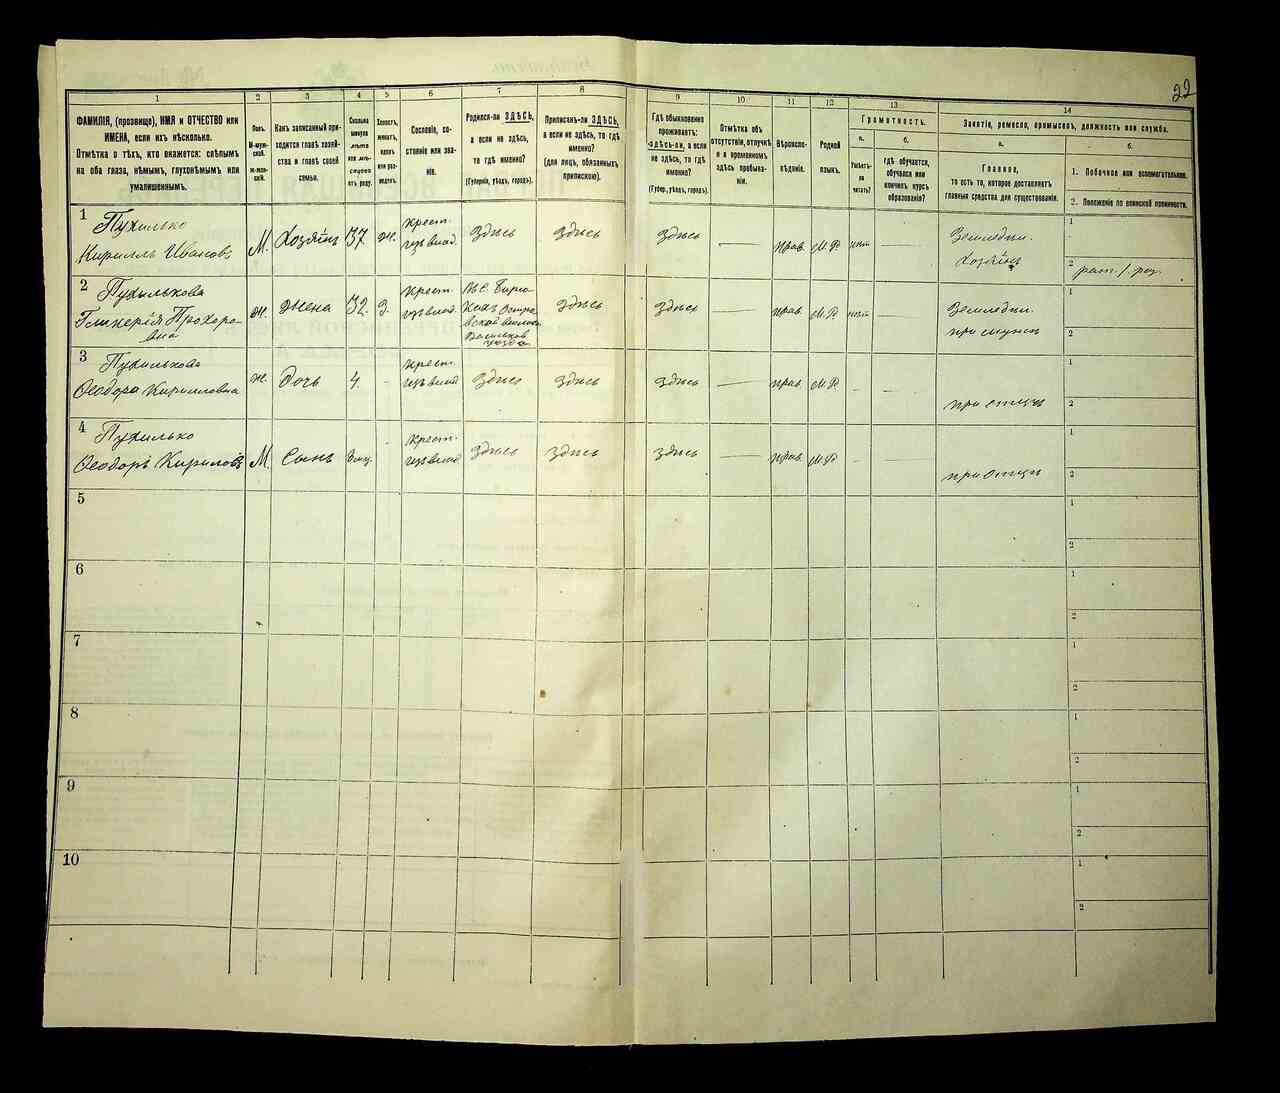 22
1 2 3 4 5 6 7 8 9 10 11 12 13 14
ФАМИЛІЯ, (прозвище), ИМЯ и ОТЧЕСТВО или
ИМЕНА, если ихъ нѣсколько.
Отмѣтка о тѣхъ, кто окажется: слѣпымъ
на оба глаза, нѣмымъ, глухонѣмымъ или
умалишеннымъ.
Полъ.
М-муж-
ской.
ж-жен-
скій.
Какъ записанный при-
ходится главѣ хозяй-
ства и главѣ своей
семьи.
Сколько
минуло
лѣтъ
или мѣ-
сяцевъ
отъ роду.
Холостъ,
женатъ,
вдовъ
или раз-
веденъ.
Сословіе, со-
стояніе или зва-
ніе.
Родился-ли ЗДѢСЬ,
а если не здѣсь,
то гдѣ именно?
(Губернія, уѣздъ, городъ).
Приписанъ-ли ЗДѢСЬ,
а если не здѣсь, то гдѣ
именно?
(для лицъ, обязанныхъ
припискою).
Гдѣ обыкновенно
проживаетъ:
ЗДѢСЬ-ли, а если
не здѣсь, то гдѣ
именно?
(Губер., уѣздъ, городъ).
Отмѣтка объ
отсутствіи, отлучкѣ
и о временномъ
здѣсь пребыва-
ніи.
Вѣроиспо-
вѣданіе.
Родной
языкъ.
Грамотность.
а.
Умѣетъ-
ли
читать?
б.
гдѣ обучается,
обучался или
кончилъ курсъ
образованія?
Занятіе, ремесло, промыселъ, должность или служба.
а.
Главное,
то есть то, которое доставляетъ
главныя средства для существованія.
б.
1. Побочное или вспомогательное.
2. Положеніе по воинской повинности.
1 Пухилько
Кириллъ Ивановъ М. Хозяинъ 37. ж. крест. изъ влад. Здѣсь Здѣсь Здѣсь — прав. М.Р. нѣт Земледѣл. Хозяинъ 1
2
2 Пухилькова
Гликерія Прохоро-
вна ж. Жена 32. З. крест. изъ влад. Здѣсь Здѣсь — прав. М.Р. нѣт Земледѣл. при мужѣ 1
2
3 Пухилькова
Ѳеодора Кирилловна ж. Дочь 4. - крест. изъ влад. Здѣсь Здѣсь Здѣсь — прав М.Р. - - при отцѣ 1
2
4 Пухилько
Ѳеодоръ Кириловъ М. Сынъ - крест. изъ влад. Здѣсь Здѣсь Здѣсь — прав. М.Р. - - при отцѣ 1
2
5 1
2
6 1
2
7 1
2
8 1
2
9 1
2
10 1
2